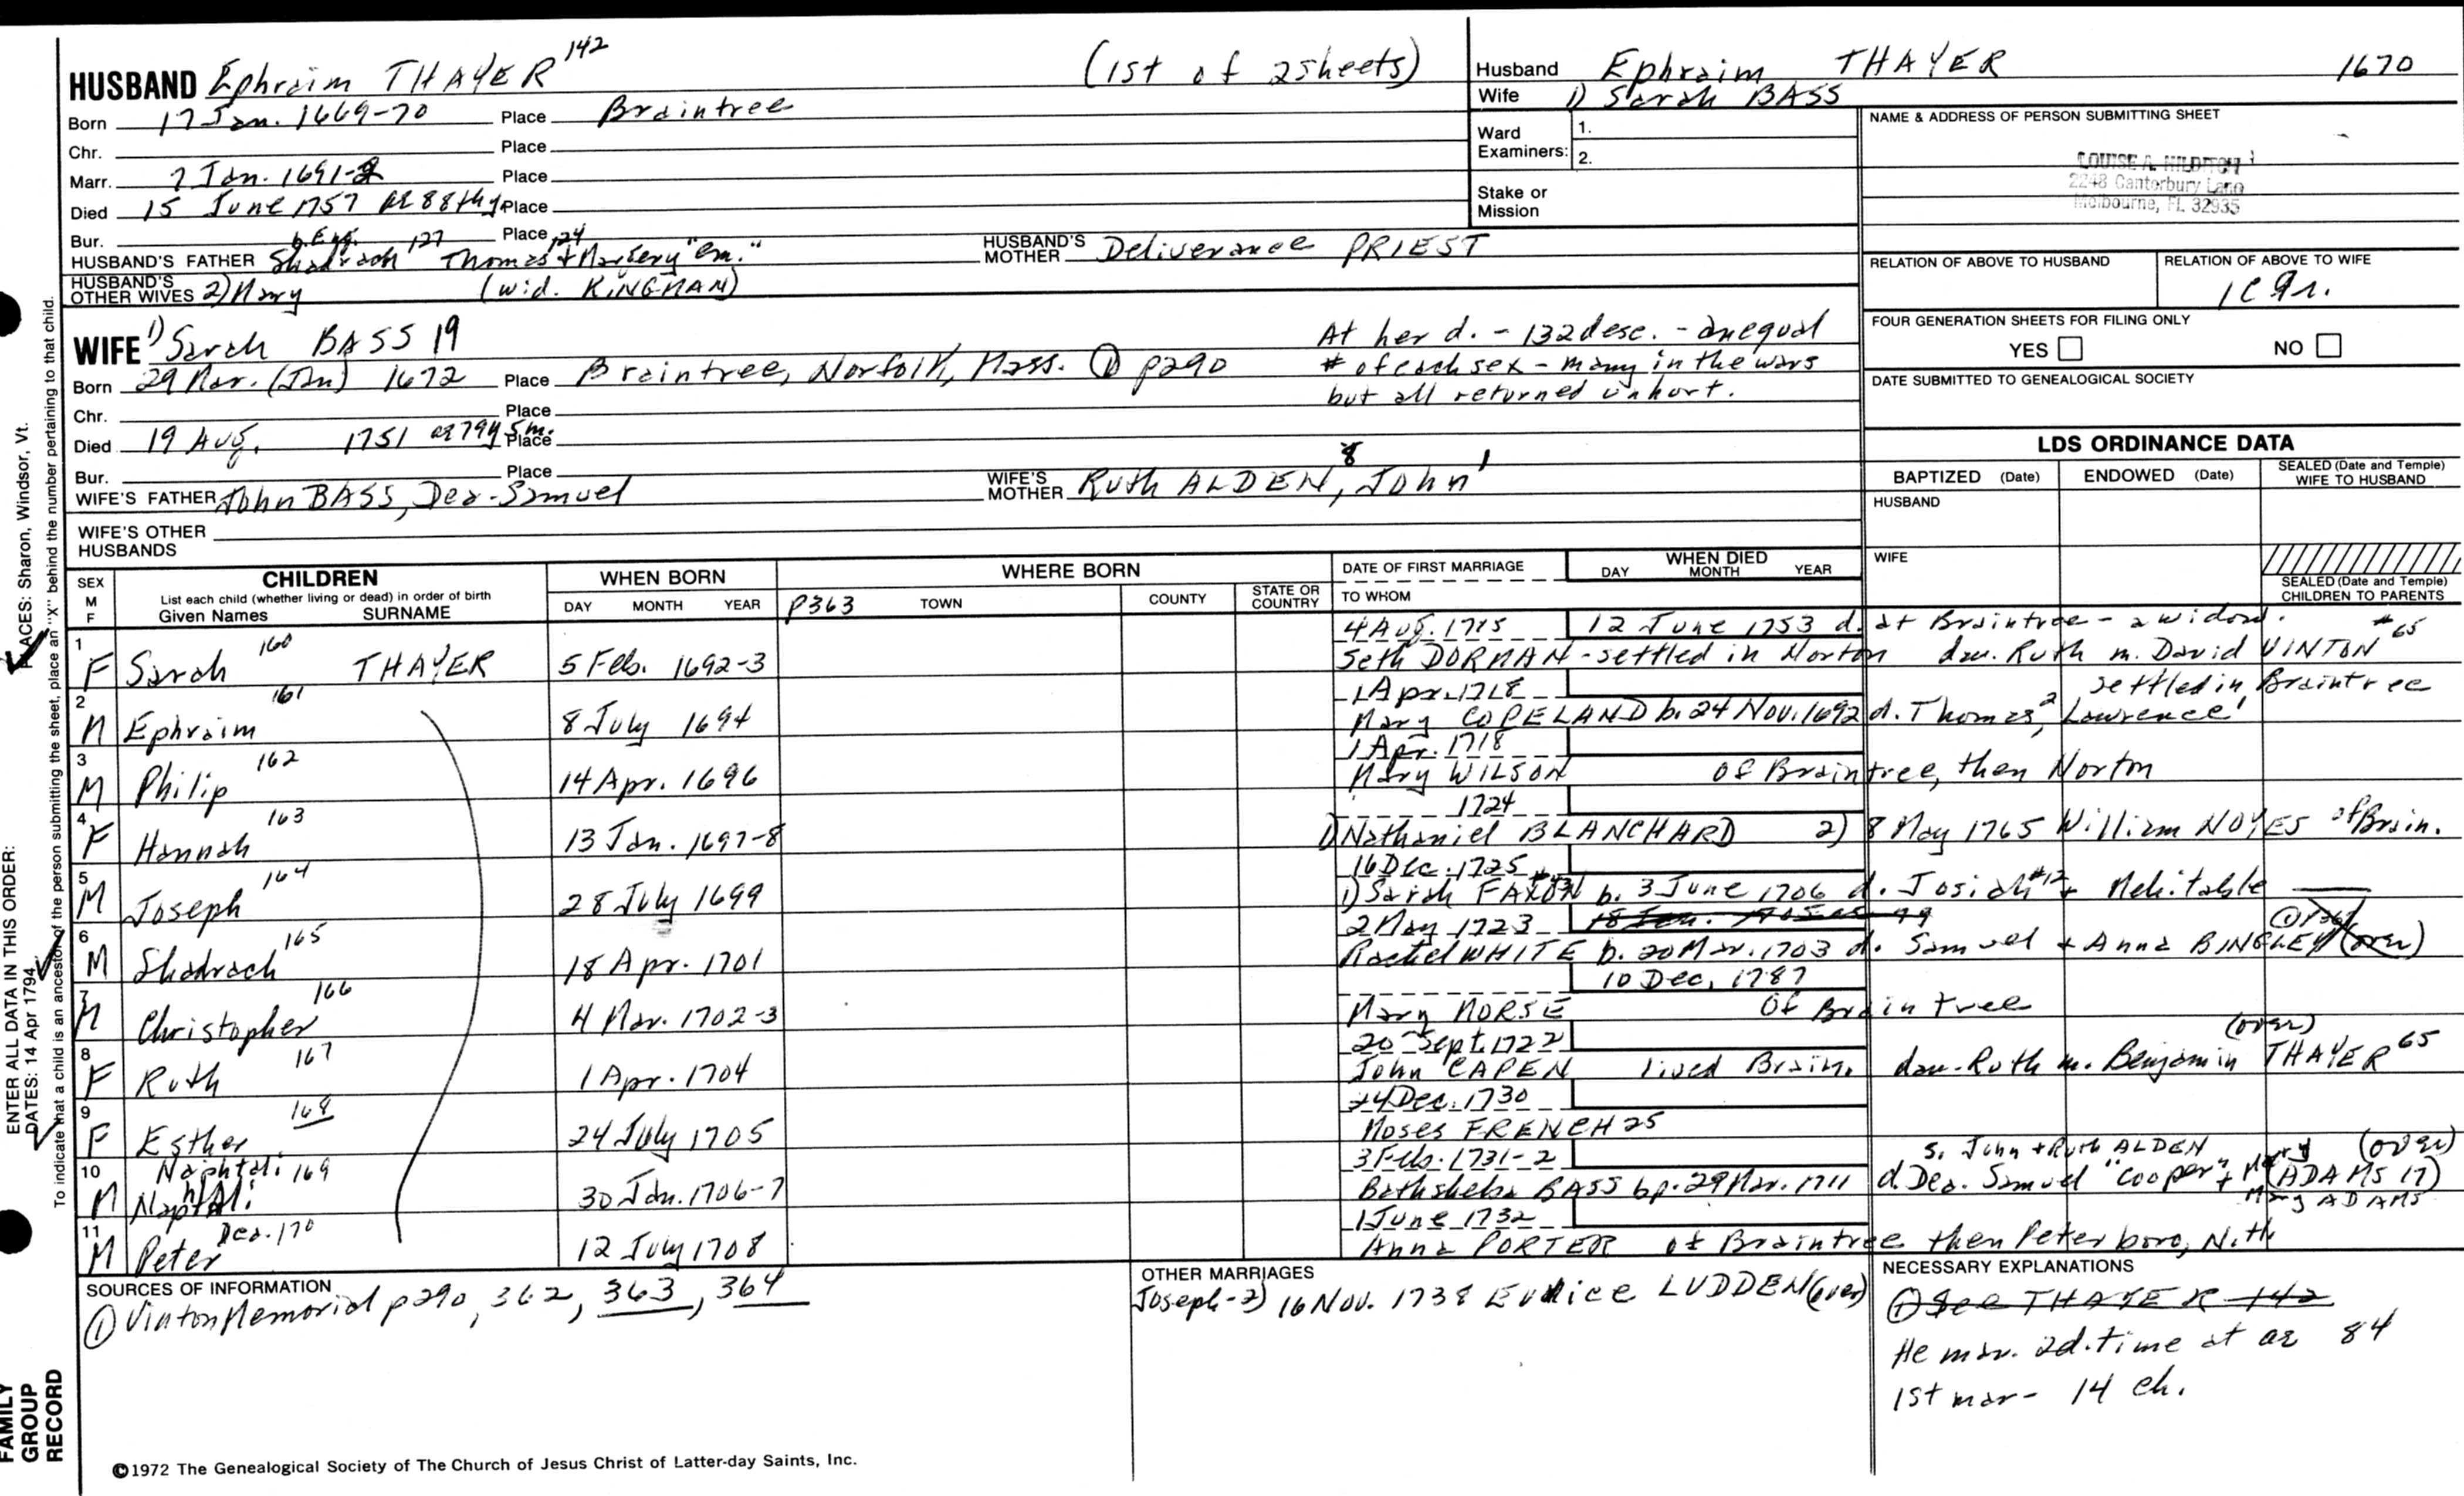 HUSBAND Ephraim THAYER 142 (1st of 2 sheets)
Born 17 Jan. 1669-70 Place Braintree
Chr. Place
Marr. 7 Jan. 1691-2 Place
Died 15 June 1757 ae 88th y Place
Bur. Place
b. Eng. 127 124
HUSBAND'S FATHER Shadrach Thomas + Margery "em." HUSBAND'S MOTHER Deliverance PRIEST
HUSBAND'S OTHER WIVES 2) Mary (wid. KINGMAN)
Husband Ephraim THAYER 1670
Wife 1) Sarah BASS
Ward Examiners: 1.
2.
Stake or Mission
NAME & ADDRESS OF PERSON SUBMITTING SHEET
LOUISE A. HILDITCH
2248 Canterbury Lane
Melbourne, FL 32935
RELATION OF ABOVE TO HUSBAND
RELATION OF ABOVE TO WIFE
1C 9r.
FOUR GENERATION SHEETS FOR FILING ONLY
YES NO
DATE SUBMITTED TO GENEALOGICAL SOCIETY
WIFE 1) Sarah BASS 19
Born 29 Mar. (Jan) 1672 Place Braintree, Norfolk, Mass. ① p290
At her d. - 132 desc. - an equal
# of each sex - many in the wars
but all returned unhurt.
Chr. Place
Died 19 Aug. 1751 ae 79y 5m. Place
Bur. Place
WIFE'S FATHER John BASS, Dea. Samuel WIFE'S MOTHER Ruth ALDEN, 8 John 1
WIFE'S OTHER HUSBANDS
LDS ORDINANCE DATA
BAPTIZED (Date) ENDOWED (Date) SEALED (Date and Temple) WIFE TO HUSBAND
HUSBAND
WIFE
SEALED (Date and Temple) CHILDREN TO PARENTS
SEX M F
CHILDREN
List each child (whether living or dead) in order of birth
Given Names SURNAME
WHEN BORN
DAY MONTH YEAR
WHERE BORN
p363 TOWN COUNTY STATE OR COUNTRY
DATE OF FIRST MARRIAGE
TO WHOM
WHEN DIED
DAY MONTH YEAR
1 160 4 Aug. 1715 12 June 1753 d. at Braintree - a widow. #65
F Sarah THAYER 5 Feb. 1692-3 Seth DORMAN - settled in Norton dau. Ruth m. David VINTON
2 161 1 Apr. 1718 settled in Braintree
M Ephraim 8 July 1694 Mary COPELAND b. 24 Nov. 1692 d. Thomas 2, Lawrence 1
3 162 1 Apr. 1718
M Philip 14 Apr. 1696 Mary WILSON of Braintree, then Norton
4 163 1724
F Hannah 13 Jan. 1697-8 1) Nathaniel BLANCHARD 2) 8 May 1765 William NOYES of Brain.
5 164 16 Dec. 1725
M Joseph 28 July 1699 1) Sarah FAXON b. 3 June 1706 d. Josiah #12 + Mehitable
6 165 2 May 1723
M Shadrach 18 Apr. 1701 Rachel WHITE b. 20 Mar. 1703 d. Samuel + Anna BINGLEY (over)
7 166 10 Dec. 1787
M Christopher 4 Mar. 1702-3 Mary MORSE of Braintree
8 167 20 Sept. 1722 (over)
F Ruth 1 Apr. 1704 John CAPEN lived Brain. dau. Ruth m. Benjamin THAYER 65
9 168 24 Dec. 1730
F Esther 24 July 1705 Moses FRENCH 25 s. John + Ruth ALDEN (over)
10 Naphtali 169 3 Feb. 1731-2
M Naphtali 30 Jan. 1706-7 Bathsheba BASS bp. 29 Mar. 1711 d. Dea. Samuel "Cooper" + Mary (ADAMS 17)
Mary ADAMS
11 Dea. 170 1 June 1732
M Peter 12 July 1708 Anna PORTER of Braintree then Peterboro, N.H.
SOURCES OF INFORMATION
① Vinton Memorial p 290, 362, 363, 364
OTHER MARRIAGES
Joseph - 2) 16 Nov. 1738 Eunice LUDDEN (over)
NECESSARY EXPLANATIONS
① See THAYER 142
He mar. 2d. time at ae 84
1st mar - 14 ch.
©1972 The Genealogical Society of The Church of Jesus Christ of Latter-day Saints, Inc.
FAMILY GROUP RECORD
ENTER ALL DATA IN THIS ORDER:
DATES: 14 Apr 1794
PLACES: Sharon, Windsor, Vt.
To indicate that a child is an ancestor of the person submitting the sheet, place an "X" behind the number pertaining to that child.